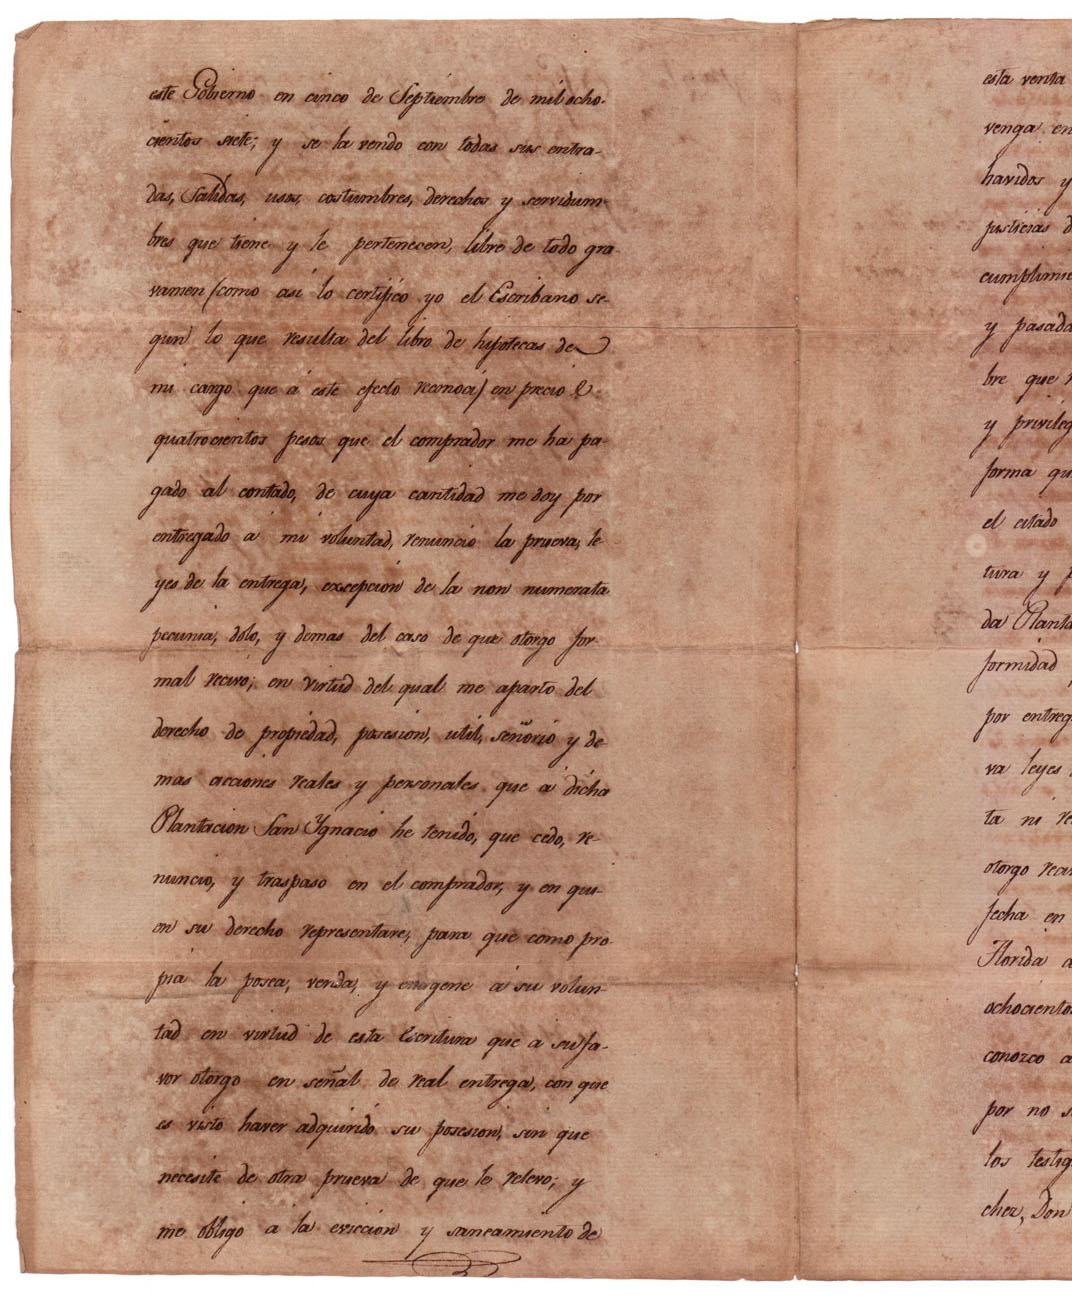 este Gobierno en cinco de Septiembre de mil ocho-
cientos siete; y se la vendo con todas sus entra-
das, Salidas, usos, costumbres, derechos y servidum-
bres que tiene y le pertenecen, libre de todo gra
vamen (como asi lo certifico yo el Escribano se-
gun lo que resulta del libro de hipotecas de
mi cargo que á este efecto reconoci) en precio de
quatrocientos pesos que el comprador me ha pa-
gado al contado, de cuya cantidad me doy por
entregado a mi voluntad, renuncio la prueva, le
yes de la entrega, excepcion de la non numerata
pecunia, dolo, y demas del caso de que otorgo for-
mal recivo; en virtud del qual me aparto del
derecho de propiedad, posesion, util, señorio y de-
mas acciones reales y personales que a dicha
Plantacion San Ygnacio he tenido, que cedo, re-
nuncio, y traspaso en el comprador, y en qui-
en su derecho representare, para que como pro-
pia la posea, venda, y enagene á su volun-
tad en virtud de esta Escritura que a su fa-
vor otorgo en señal de real entrega, con que
es visto haver adquirido su posesion, sin que
necesite de otra prueva de que le relevo; y
me obligo a la eviccion y saneamiento de
esta venta
venga en
havidos y
justicias d
cumplimie
y pasada
bre que
y privileg
forma qu
el citado
tura y p
da Planta
formidad
por entreg
va leyes
ta ni re
otorgo reci
fecha en
Florida a
ochociento
conozco a
por no s
los testig
chez, Don